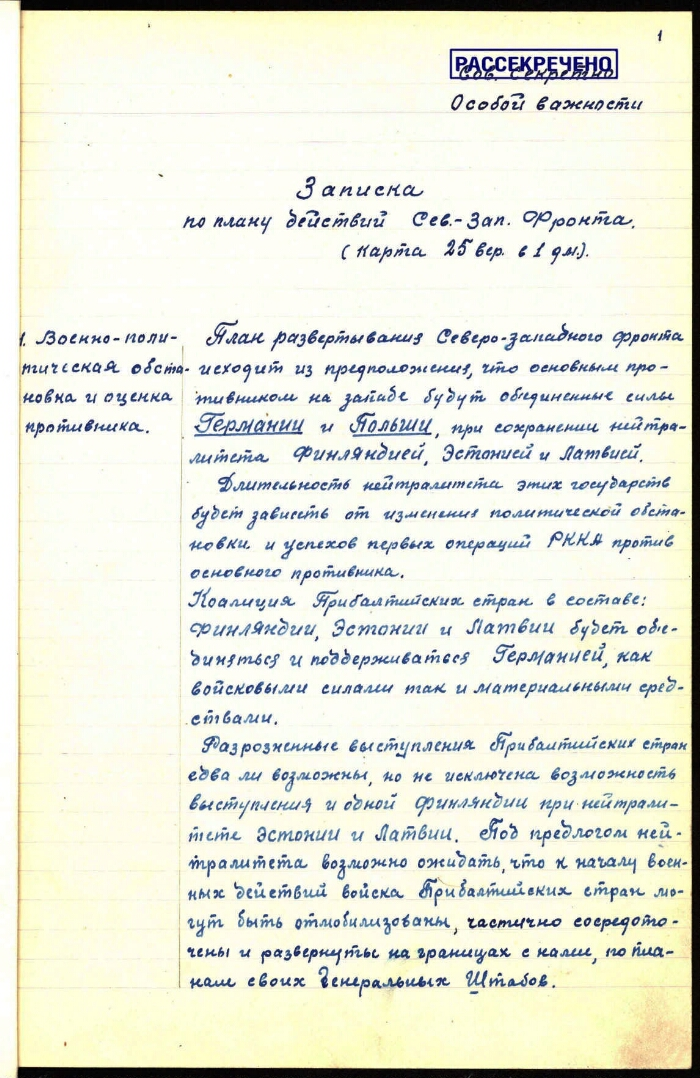 1
РАССЕКРЕЧЕНО
Сов. Секретно
Особой важности
Записка
по плану действий Сев.-Зап. Фронта.
(Карта 25 вер. в 1 дм.).
1. Военно-поли-
тическая обста-
новка и оценка
противника.
План развертывания Северо-западного фронта
исходит из предположения, что основным про-
тивником на западе будут объединенные силы
Германии и Польши, при сохранении нейтра-
литета Финляндией, Эстонией и Латвией.
Длительность нейтралитета этих государств
будет зависеть от изменения политической обста-
новки и успехов первых операций РККА против
основного противника.
Коалиция Прибалтийских стран в составе:
Финляндии, Эстонии и Латвии будет объе-
диняться и поддерживаться Германией, как
войсковыми силами так и материальными сред-
ствами.
Разрозненные выступления Прибалтийских стран
едва ли возможны, но не исключена возможность
выступления и одной Финляндии при нейтрали-
тете Эстонии и Латвии. Под предлогом ней-
тралитета возможно ожидать, что к началу воен-
ных действий войска Прибалтийских стран мо-
гут быть отмобилизованы, частично сосредото-
чены и развернуты на границах с нами, по пла-
нам своих Генеральных Штабов.